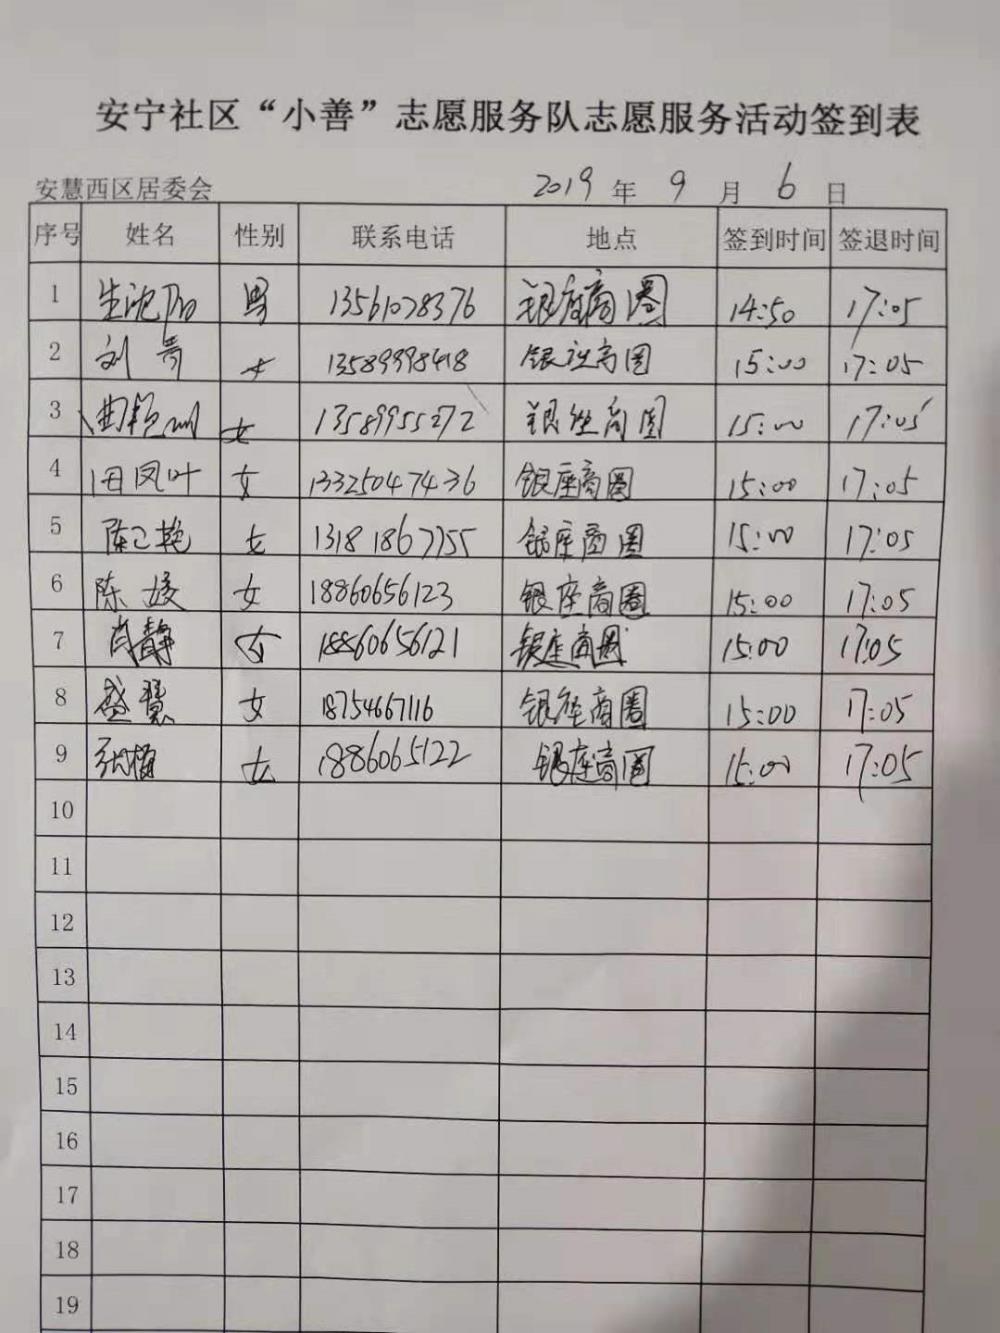 安宁社区“小善”志愿服务队志愿服务活动签到表
安慧西区居委会 2019 年 9 月 6 日
序号 姓名 性别 联系电话 地点 签到时间 签退时间
1 男 13561078376 银座商圈 14:50 17:05
2 刘 女 13589998418 银座商圈 15:00 17:05
3 女 13589955272 银座商圈 15:00 17:05
4 田凤叶 女 13325047436 银座商圈 15:00 17:05
5 陈 女 13181867755 银座商圈 15:00 17:05
6 陈媛 女 18860656123 银座商圈 15:00 17:05
7 肖静 女 18860656121 银座商圈 15:00 17:05
8 盛慧 女 18754667116 银座商圈 15:00 17:05
9 女 1886065122 银座商圈 15:00 17:05
10
11
12
13
14
15
16
17
18
19